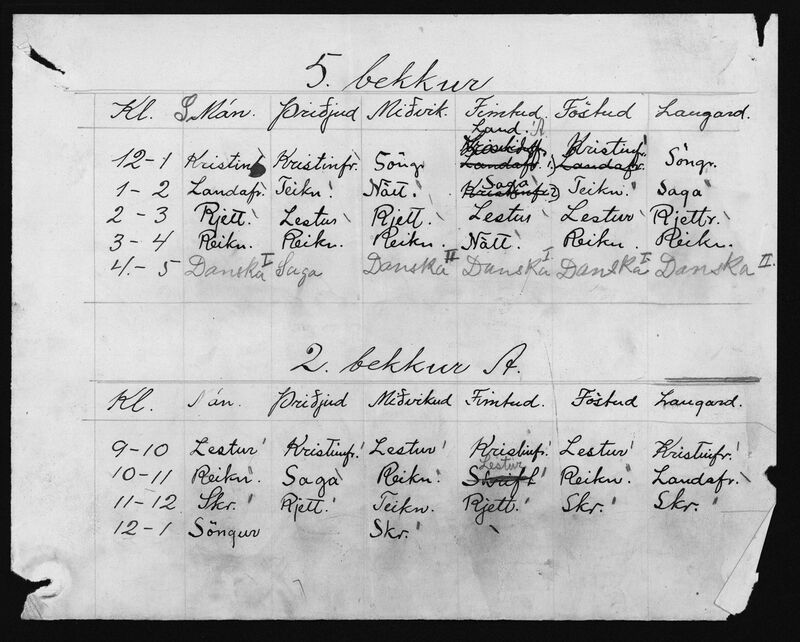 5. bekkur
Kl. Mán. Þriðjud Miðvik. Fimtud. Föstud Laugard.
Land.
12-1 Kristinf Kristinfr. Söngr Landafr. Kristinf. Landafr. Söngr.
Saga
1-2 Landafr. Teikn. Nátt. Kristinfr. Teikn. Saga
2-3 Rjett. Lestur Rjett. Lestur Lestur Rjettr.
3-4 Reikn. Reikn. Reikn. Nátt. Reikn. Reikn.
4-5 Danska I Saga Danska II Danska I Danska I Danska II.
2. bekkur A.
Kl. Mán. Þriðjud Miðvikud Fimtud. Föstud Laugard.
9-10 Lestur Kristinfr. Lestur Kristinfr. Lestur Kristinfr.
Lestur
10-11 Reikn. Saga Reikn. Skrift Reikn. Landafr.
11-12 Skr. Rjett. Teikn. Rjett. Skr. Skr.
12-1 Söngur Skr.